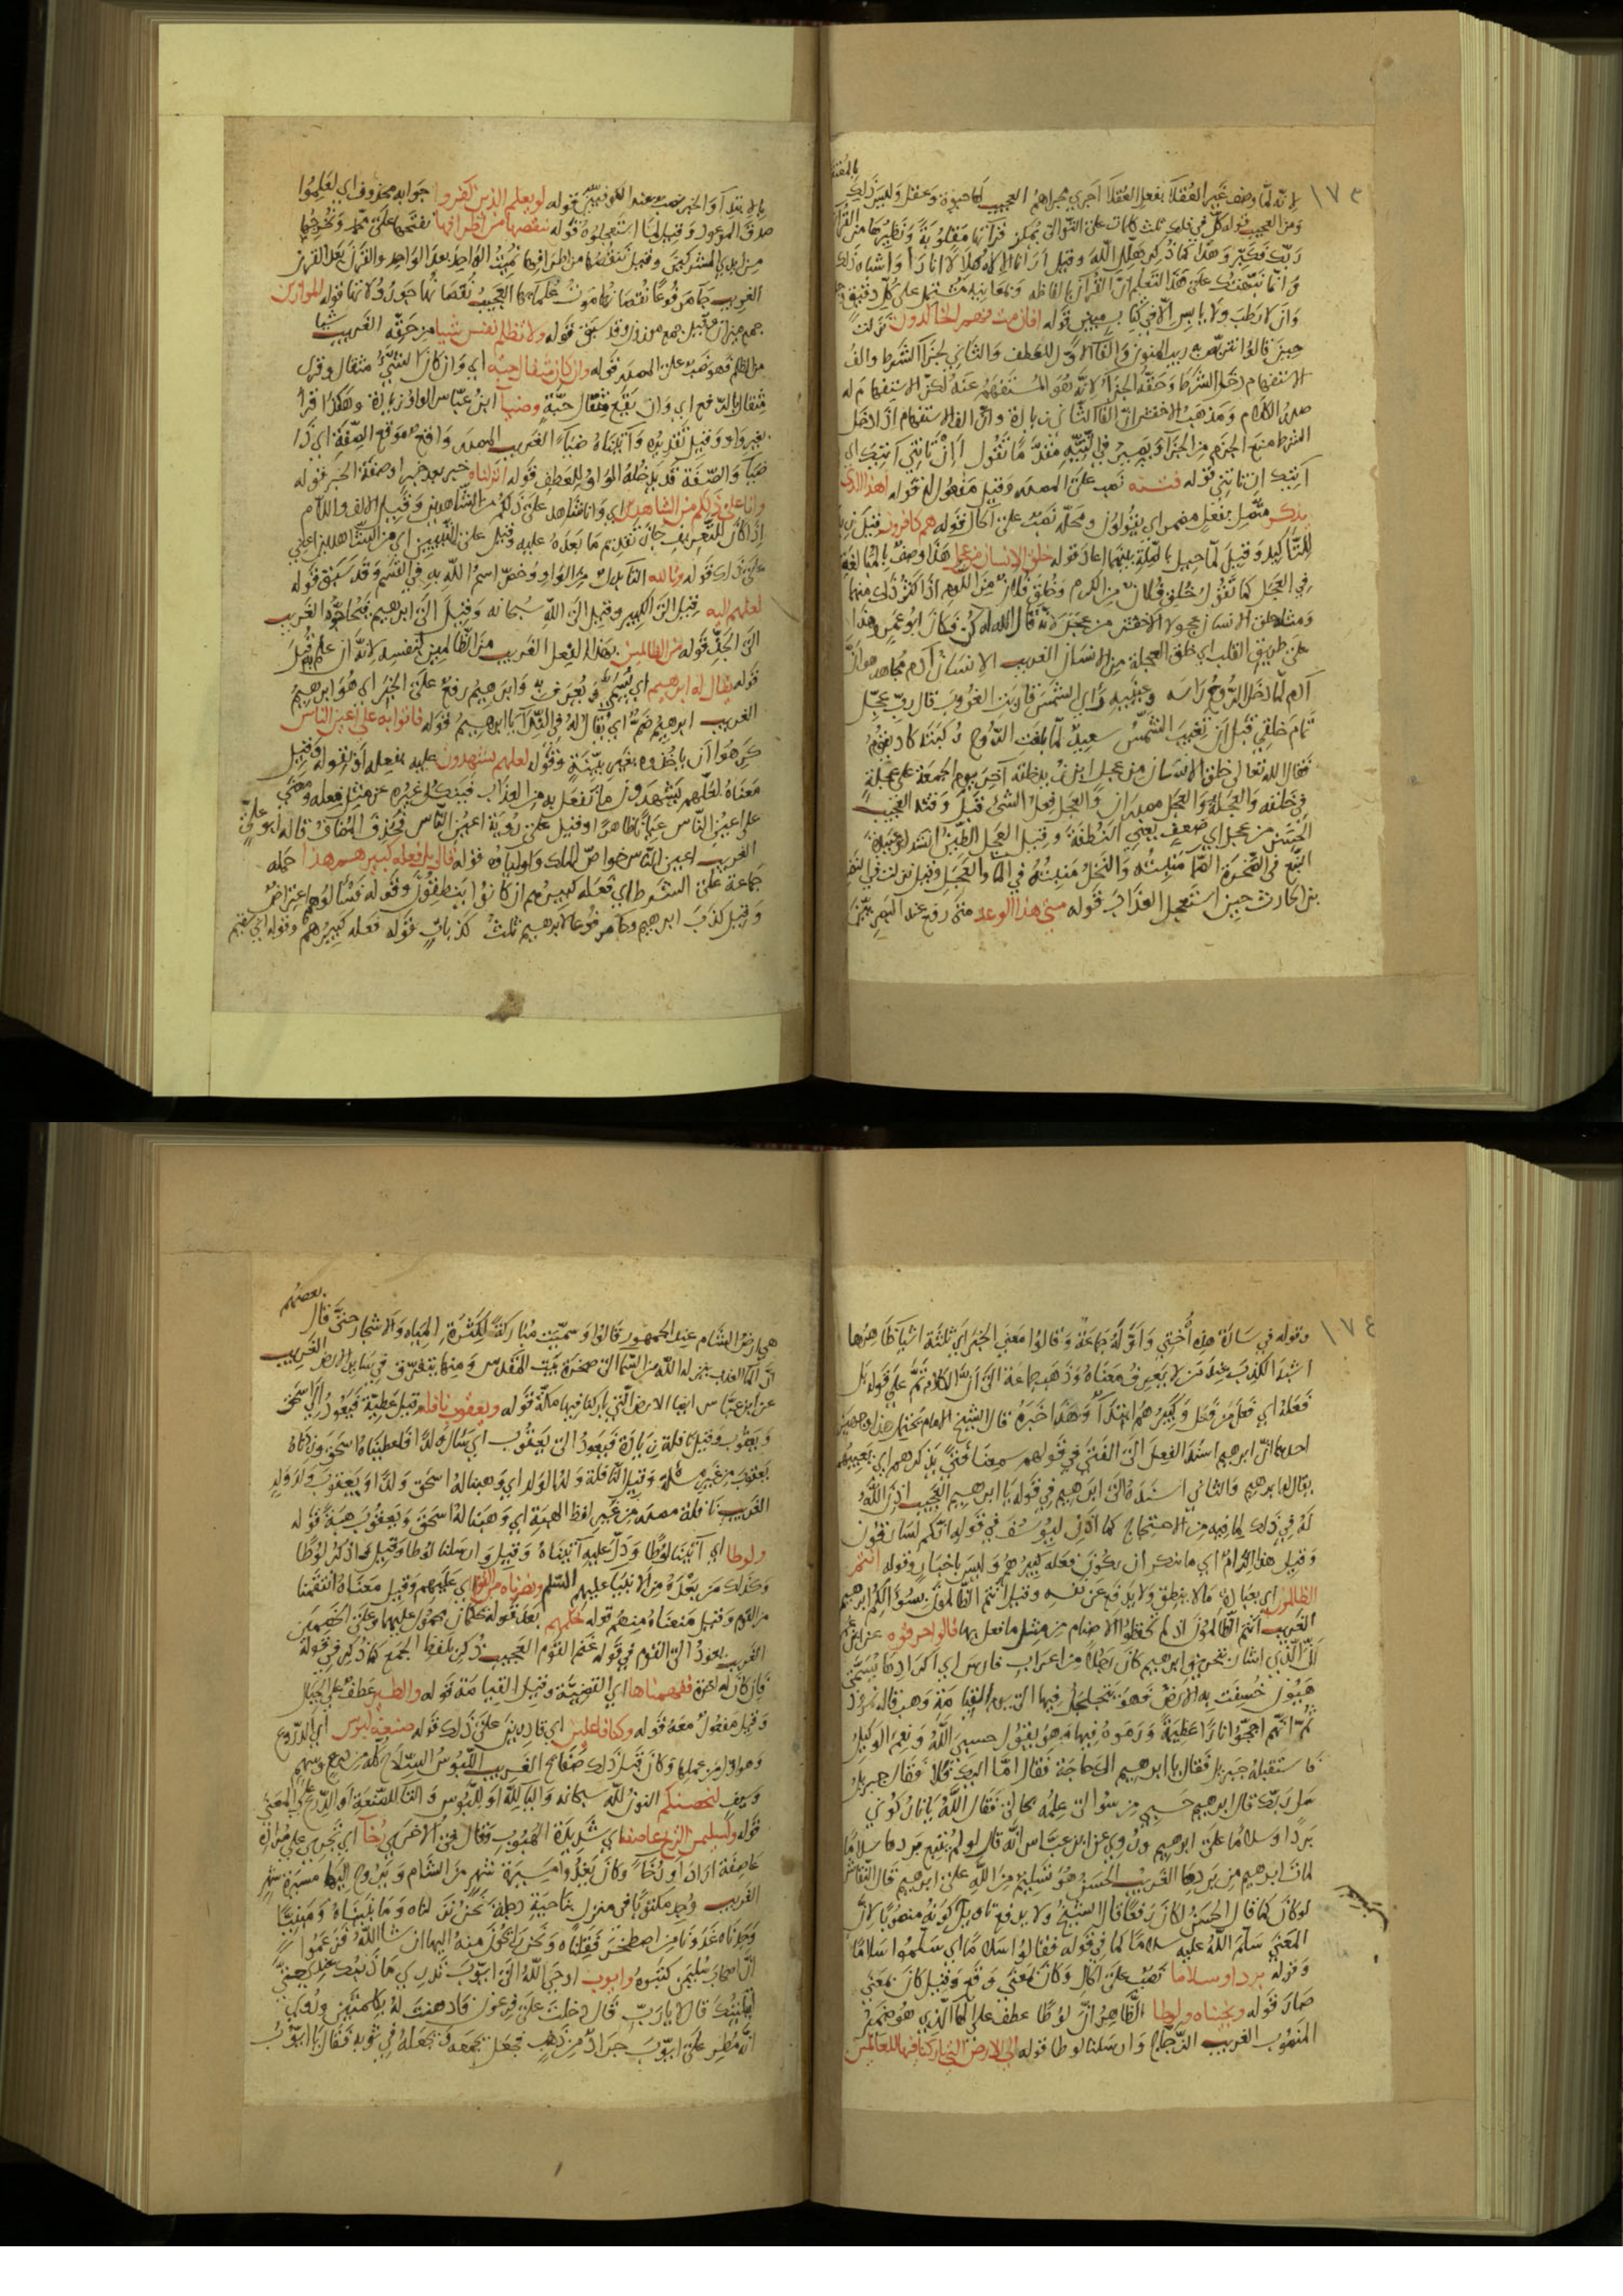 ١٧٣
لانه لما وصف غير العقلا بفعل العقلا اجري مجراهم العجيب لها حيوة وعقل وليس ذلك
ومن العجيب قوله كل في فلك ثلث كلمات على التوالي يمكن قرآتها مقلوبة ونظيرها من القرآن
ربك فكبر وهذا كما ذكر هلال الله وقيل ارانا الاله هلالا انارا واشباه ذلك
وانما نبهتك على هذا لتعلم ان القرآن بالفاظه ومعانيه مشتمل على كل دقيق
وان لا رطب ولا يابس الا في كتاب مبين قوله افان مت فهم الخالدون نزلت
حين قالوا نتربص به ريب المنون والفآ الاول للعطف والثاني لجزآ الشرط والف
الاستفهام دخل الشرط وحقه الجزآ لانه هو المستفهم عنه لكن الاستفهام له
صدر الكلام ومذهب الاخفش ان الفا الثاني زيادة وان الف الاستفهام اذا دخل
الشرط منع الجزم من الجزآ ويصير في النية مقدما تقول اان تاتني آتيك اي
آتيك ان تاتني قوله فتنة نصب على المصدر وقيل مفعول له قوله اهذا الذي
يذكر متصل بفعل مضمر اي يقولون ومحله نصب على الحال قوله هم كافرون قيل
للتاكيد وقيل لما حيل بالصلة بينهما اعاد قوله خلق الانسان من عجل هذا وصف بالمبالغة
في العجل كما تقول خلق فلان من الكرم وخلق فلان من اللوم اذا كثر ذلك منهما
ومثله خلق الانسان عجولا الاخفش من عجل لانه قال الله له كن فكان ابو عمر وهذا
على طريق القلب اي خلق العجلة من الانسان الغريب الانسان آدم مجاهد هو ان
آدم لما دخل الروح راسه وعينيه راي الشمس قاربت الغروب قال رب عجل
تمام خلقي قبل ان تغيب الشمس سعيد لما بلغت الروح ركبته كاد يقوم
فقال الله تعالى خلق الانسان من عجل ابن زيد خلقه آخر يوم الجمعة على عجلة
في خلقه والعجلة والعجل مصدران والعجل فعل الشئ قبل وقته العجيب
الحسن من عجل اي ضعيف يعني النطفة وقيل العجل الطين انشد ابو عبيدة
النبع في الصخرة الصما منبته والنخل منبته في الما والعجل وقيل نزلت في النضر
بن الحارث حين استعجل العذاب قوله متى هذا الوعد متى رفع عند البصريين
بالابتدآ والخبر نصب عند الكوفيين قوله لو يعلم الذين كفروا جوابه محذوف اي لعلموا
صدق الموعود وقيل لما استعجلوه قوله ننقصها من اطرافها نفتحها على محمد ونخرجها
من ايدي المشركين وقيل ننقصها من اطرافها نميت الواحد بعد الواحد والقرن بعد القرن
الغريب جآ مرفوعا نقصانها موت علمآئها العجيب نقصانها جور ولاتها قوله الموازين
جمع ميزان وقيل جمع موزون وقد سبق قوله ولا تظلم نفس شيا من حقه الغريب شيا
من الظلم فهو نصب على المصدر قوله وان كان مثقال حبة اي وان كان الشئ مثقال وقرئ
مثقال بالرفع اي وان يقع مثقال حبة وضيآ ابن عباس الواو زيادة وهكذا قرأ
بغير واو وقيل تقديره وآتيناه ضيآ الغريب المصدر واقع موقع الصفة اي ذا
ضيآ والصفة قد يدخله الواو للعطف قوله انزلناه خبر بعد خبر او صفة الخبر قوله
وانا على ذلكم من الشاهدين اي وانا شاهد على ذلكم من الشاهدين وقيل الالف واللام
اذا كان للتعريف جاز تقديم ما بعده عليه وقيل على التبيين اي من الشاهدين اعني
على ذلك قوله وتالله التآ بدل من الواو وخص اسم الله به في القسم وقد سبق قوله
لعلهم اليه قيل الى الكبير وقيل الى الله سبحانه وقيل الى ابراهيم فيحاجوه الغريب
الى الجد قوله من الظالمين بهذا الفعل الغريب من الظالمين لنفسه لانه ان علم به قتل
قوله يقال له ابراهيم اي يسمى ويعرف به وابراهيم رفع على الخبر اي هو ابراهيم
الغريب ابراهيم ضم اي يقال له في الندآ يا ابراهيم قوله فاتوا به على اعين الناس
كرهوا ان ياخذوه بغير بينة وقوله لعلهم يشهدون عليه بفعله او بقوله وقيل
معناه لعلهم يشهدون ما نفعل به من العذاب فينكل غيره عن مثل فعله ومعنى
على اعين الناس عيانا ظاهرا وقيل على روية اعين الناس فحذف المضاف قاله ابو علي
الغريب اعين الناس خواص الملك واولياوه قوله قال بل فعله كبيرهم هذا حمله
جماعة على الشرط اي فعله كبيرهم ان كانوا ينطقون وقوله فسئلوهم اعتراض
وقيل كذب ابراهيم وجآ مرفوعا لابرهيم ثلث كذبات قوله فعله كبيرهم وقوله اني سقيم
١٧٤
وقوله في سارة هذه أختي واوله جماعة وقالوا معنى الخبر اي ثلثة اشيا ظاهرها
اشبه الكذب عند من لا يعرف معناه وذهب جماعة الى ان الكلام تم على قوله بل
فعله اي فعله من فعل وكبيرهم ابتدآ وهذا خبره قال الشيخ الامام يحتمل هذا وجهين
احدهما ان ابرهيم اسند الفعل الى الفتى في قولهم سمعنا فتى يذكرهم اي يعيبهم
يقال له ابرهيم والثاني اسنده الى ابرهيم في قوله يا ابرهيم العجيب اذن الله
له في ذلك لما فيه من الاحتجاج كما اذن ليوسف في قوله انكم لسارقون
وقيل هذا الزام اي ما ينكر ان يكون فعله كبيرهم وليس باخبار وقوله انتم
الظالمون اي بعبادة ما لا ينطق ولا يدفع عن نفسه وقيل انتم الظالمون بسوالكم ابرهيم
الغريب انتم الظالمون اذ لم تحفظوا الاصنام من مثل ما فعل بها قالوا حرقوه عن ابن عمر
ان الذي اشار بتحريق ابرهيم كان رجلا من اعراب فارس اي اكرادها يسمى
هيون خسفت به الارض فهو يتجلجل فيها الى يوم القيامة وهب قاله نمرود
ثم انهم اججوا نارا عظيمة ورموه فيها وهو يقول حسبي الله ونعم الوكيل
فاستقبله جبريل فقال يا ابرهيم الك حاجة فقال اما اليك فلا فقال جبريل
سل ربك قال ابرهيم حسبي من سوالي علمه بحالي فقال الله يا نار كوني
بردا وسلاما على ابرهيم وروي عن ابن عباس انه قال لو لم يتبع بردها سلاما
لمات ابرهيم من بردها الغريب الحسن هو تسليم من الله على ابرهيم قال النقاش
لو كان كما قال الحسن لكان رفعا قال الشيخ ولا يدفع تاويله كونه منصوبا لان
المعنى سلم الله عليه سلاما كما في قوله فقالوا سلاما اي سلموا سلاما
وقوله بردا وسلاما نصب على الحال وكان بمعنى وقع وقيل كان بمعنى
صار قوله ونجيناه ولوطا الظاهر ان لوطا عطف على الها الذي هو ضمير
المنصوب الغريب الزجاج وارسلنا لوطا قوله الى الارض التي باركنا فيها للعالمين
هي ارض الشام عند الجمهور قالوا وسميت مباركة لكثرة المياه والاشجار حتى قال بعضهم
ان الما العذب ينزله الله من السما الى صخرة بيت المقدس ومنها يتفرق في ساير الارض الغريب
عن ابن عباس ايضا الارض التي باركنا فيها مكة قوله ويعقوب نافلة قيل عطية فيعود الى اسحق
ويعقوب وقيل نافلة زيادة فيعود الى يعقوب اي سال ولدا فاعطيناه اسحق وزدناه
يعقوب من غير مسئلة وقيل النافلة ولد الولد اي وهبنا له اسحق ولدا ويعقوب ولد ولد
الغريب نافلة مصدر من غير لفظ الهبة اي وهبنا له اسحق ويعقوب هبة قوله
ولوطا اي آتينا لوطا ودل عليه آتيناه وقيل وارسلنا لوطا وقيل واذكر لوطا
وكذلك من بعده من الانبيا عليهم السلم ونصرناه من القوم اي عليهم وقيل معناه انتقمنا
من القوم وقيل منعناه منهم قوله لحكمهم بعد قوله يحكمان محمول عليهما وعلى الخصمين
الغريب يعود الى القوم في قوله غنم القوم العجيب ذكر بلفظ الجمع كما ذكر في قوله
فان كان له اخوة ففهمناها اي القضية وقيل الفتيا قوله والطير عطف على الجبال
وقيل مفعول معه قوله وكنا فاعلين اي قادرين على ذلك قوله صنعة لبوس اي الدروع
وهو اول من عملها وكان قبل ذلك صفائح الغريب اللبوس السلاح كله من درع وسهم
وسيف لنحصنكم النون لله سبحانه واليا لله او للبوس والتا للصنعة او الدرع على المعنى
قوله ولسليمن الريح عاصفة اي شديدة الهبوب وقال في الاخرى رخآ اي تجري على مراده
عاصفة اراد او رخآ وكان يغدوا مسيرة شهر من الشام ويروح اليها مسيرة شهر
الغريب وجد مكتوبا في منزل بناحية دجلة نحن نزلناه وما بنيناه ومبنيا
وجدناه غدونا من اصطخر فقلناه ونحن رايحون منه اليها ان شا الله فزعموا
ان اصحاب سليمن كتبوه وايوب اوحى الله الى ايوب تدري ما ذنبك عندي حتى
ابتليتك قال لا يا رب قال دخلت على فرعون فداهنت له بكلمتين وروي
انه مطر على ايوب جراد من ذهب فجعل يجمعه فيجعله في ثوبه فقال يا ايوب